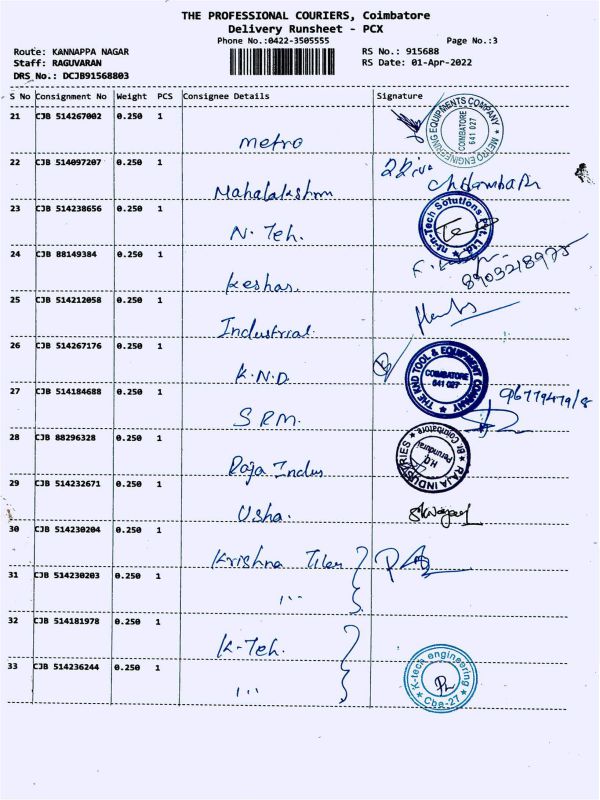 THE PROFESSIONAL COURIERS, Coimbatore
Delivery Runsheet - PCX
Phone No.:0422-3505555 Page No.:3
Route: KANNAPPA NAGAR RS No.: 915688
Staff: RAGUVARAN RS Date: 01-Apr-2022
DRS No.: DCJB91568803
S No Consignment No Weight PCS Consignee Details Signature
21 CJB 514267002 0.250 1 Metro METRO ENGINEERING EQUIPMENTS COMPANY COIMBATORE 641 027
22 CJB 514097207 0.250 1 Mahalakshmi
23 CJB 514238656 0.250 1 N. Teh. nt-n-Tech Solutions Pvt. Ltd.
24 CJB 88149384 0.250 1 Keshav. 8903218975
25 CJB 514212058 0.250 1 Industrial.
26 CJB 514267176 0.250 1 K.N.D. THE KND TOOL & EQUIPMENT COMPANY COIMBATORE 641 027
27 CJB 514184688 0.250 1 SRM.
28 CJB 88296328 0.250 1 Raja Indus RAJA INDUSTRIES H.O. Perundurai Bt. Coimbatore
29 CJB 514232671 0.250 1 Usha.
30 CJB 514230204 0.250 1 Krishna Tiles
31 CJB 514230203 0.250 1 ı ıı
32 CJB 514181978 0.250 1 K-Teh.
33 CJB 514236244 0.250 1 ı ıı K-tech engineering Cbe-27